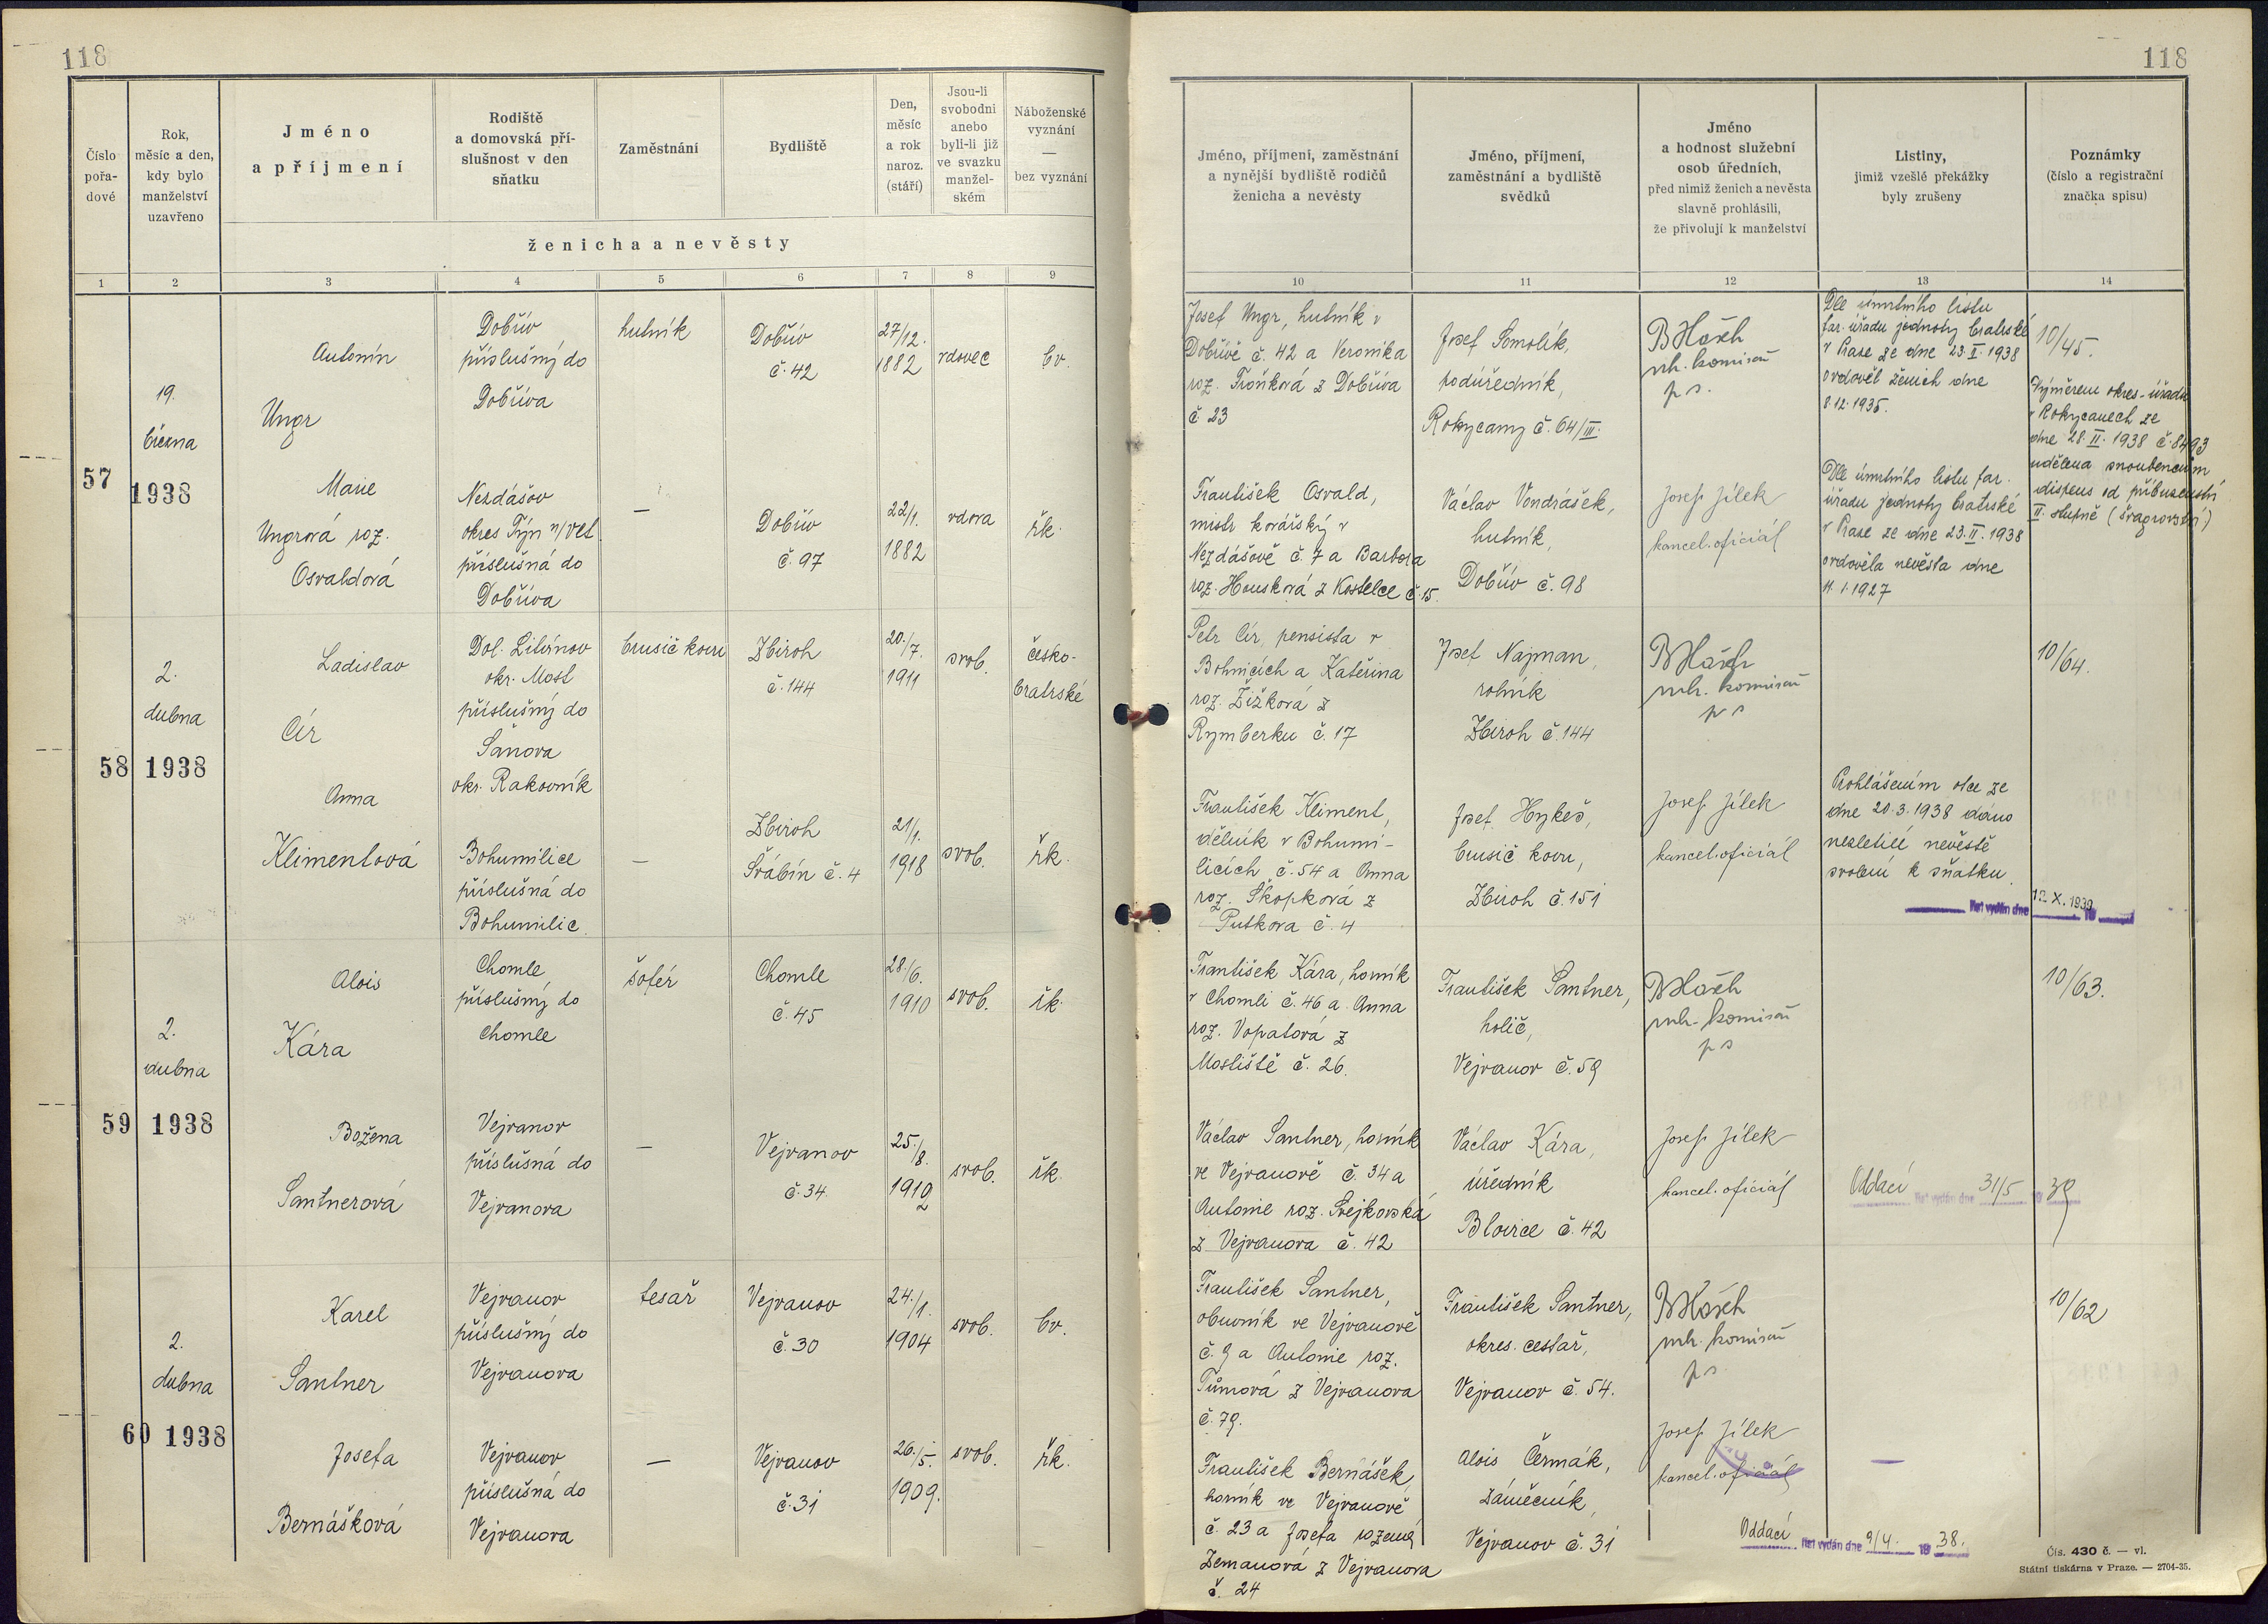 118
118
Číslo pořa- dové
Rok, měsíc a den, kdy bylo manželství uzavřeno
Jméno a příjmení
Rodiště a domovská pří- slušnost v den sňatku
Zaměstnání
Bydliště
Den, měsíc a rok naroz. (stáří)
Jsou-li svobodni anebo byli-li již ve svazku manžel- ském
Náboženské vyznání — bez vyznání
ženicha a nevěsty
Jméno, příjmení, zaměstnání a nynější bydliště rodičů ženicha a nevěsty
Jméno, příjmení, zaměstnání a bydliště svědků
Jméno a hodnost služební osob úředních, před nimiž ženich a nevěsta slavně prohlásili, že přivolují k manželství
Listiny, jimiž vzešlé překážky byly zrušeny
Poznámky (číslo a registrační značka spisu)
1 2 3 4 5 6 7 8 9 10 11 12 13 14
57
19.
března
1938
Antonín
Ungr
Dobřív
příslušný do
Dobříva
hutník
Dobřív
č. 42
27/12.
1882
vdovec
bv.
Josef Ungr, hutník v
Dobřívě č. 42 a Veronika
roz. Troňková z Dobříva
č. 23
Josef Smolík,
podúředník,
Rokycany č. 64/III.
mh. komisař
Dle úmrtního listu
far. úřadu jednoty bratrské
v Praze ze dne 23.II.1938
ovdověl ženich dne
8.12.1935.
10/45.
Výměrem okres. úřadu
v Rokycanech ze
dne 28.II.1938 č. 8493
udělena snoubencům
dispens od příbuzenství
II. stupně (švagrovství)
Marie
Ungrová roz.
Osvaldová
Nezdášov
okres Týn n/Vlt
příslušná do
Dobříva
—
Dobřív
č. 97
22/1.
1882
vdova
řk.
František Osvald,
mistr kovářský v
Nezdášově č. 7 a Barbora
roz. Housková z Kostelce č. 15.
Václav Vondrášek,
hutník,
Dobřív č. 98
Josef Jílek
kancel. oficiál
Dle úmrtního listu far.
úřadu jednoty bratrské
v Praze ze dne 23.II.1938
ovdověla nevěsta dne
11.1.1927
58
2.
dubna
1938
Ladislav
Cír
Dol. Litvínov
okr. Most
příslušný do
Šanova
okr. Rakovník
brusič kovu
Zbiroh
č. 144
20./7.
1911
svob.
česko-
bratrské
Petr Cír, pensista v
Bohnicích a Kateřina
roz. Žižková z
Rymberku č. 17
Josef Najman,
rolník
Zbiroh č. 144
mh. komisař
10/64.
Anna
Klimentová
Bohumilice
příslušná do
Bohumilic
—
Zbiroh
Švábín č. 4
21/1.
1918
svob.
řk.
František Kliment,
dělník v Bohumi-
licích č. 54 a Anna
roz. Skopková z
Putkova č. 4
Josef Hykeš,
brusič kovu,
Zbiroh č. 151
Josef Jílek
kancel. oficiál
Prohlášením otce ze
dne 20.3.1938 dáno
nezletilé nevěstě
svolení k sňatku.
list vydán dne 12. X. 1939 19
59
2.
dubna
1938
Alois
Kára
Chomle
příslušný do
Chomle
šofér
Chomle
č. 45
28./6.
1910
svob.
řk.
František Kára, horník
v Chomli č. 46 a Anna
roz. Vopatová z
Mostiště č. 26.
František Santner,
holič,
Vejvanov č. 59
mh. komisař
10/63.
Božena
Santnerová
Vejvanov
příslušná do
Vejvanova
—
Vejvanov
č. 34
25./8.
1912
svob.
řk.
Václav Santner, horník
ve Vejvanově č. 34 a
Antonie roz. Svejkovská
z Vejvanova č. 42
Václav Kára,
úředník
Blovice č. 42
Josef Jílek
kancel. oficiál
Oddací list vydán dne 31/5 19 39
60
2.
dubna
1938
Karel
Santner
Vejvanov
příslušný do
Vejvanova
tesař
Vejvanov
č. 30
24./1.
1904
svob.
bv.
František Santner,
obuvník ve Vejvanově
č. 9 a Antonie roz.
Tůmová z Vejvanova
č. 79.
František Santner,
okres. cestář,
Vejvanov č. 54.
mh. komisař
10/62
Josefa
Bernášková
Vejvanov
příslušná do
Vejvanova
—
Vejvanov
č. 31
26./5.
1909.
svob.
řk.
František Bernášek,
horník ve Vejvanově
č. 23 a Josefa rozená
Zemanová z Vejvanova
č. 24
Alois Čermák,
zámečník,
Vejvanov č. 31
Josef Jílek
kancel. oficiál
—
Oddací list vydán dne 9/4. 19 38.
Čís. 430 č. — vl.
Státní tiskárna v Praze. — 2704-35.